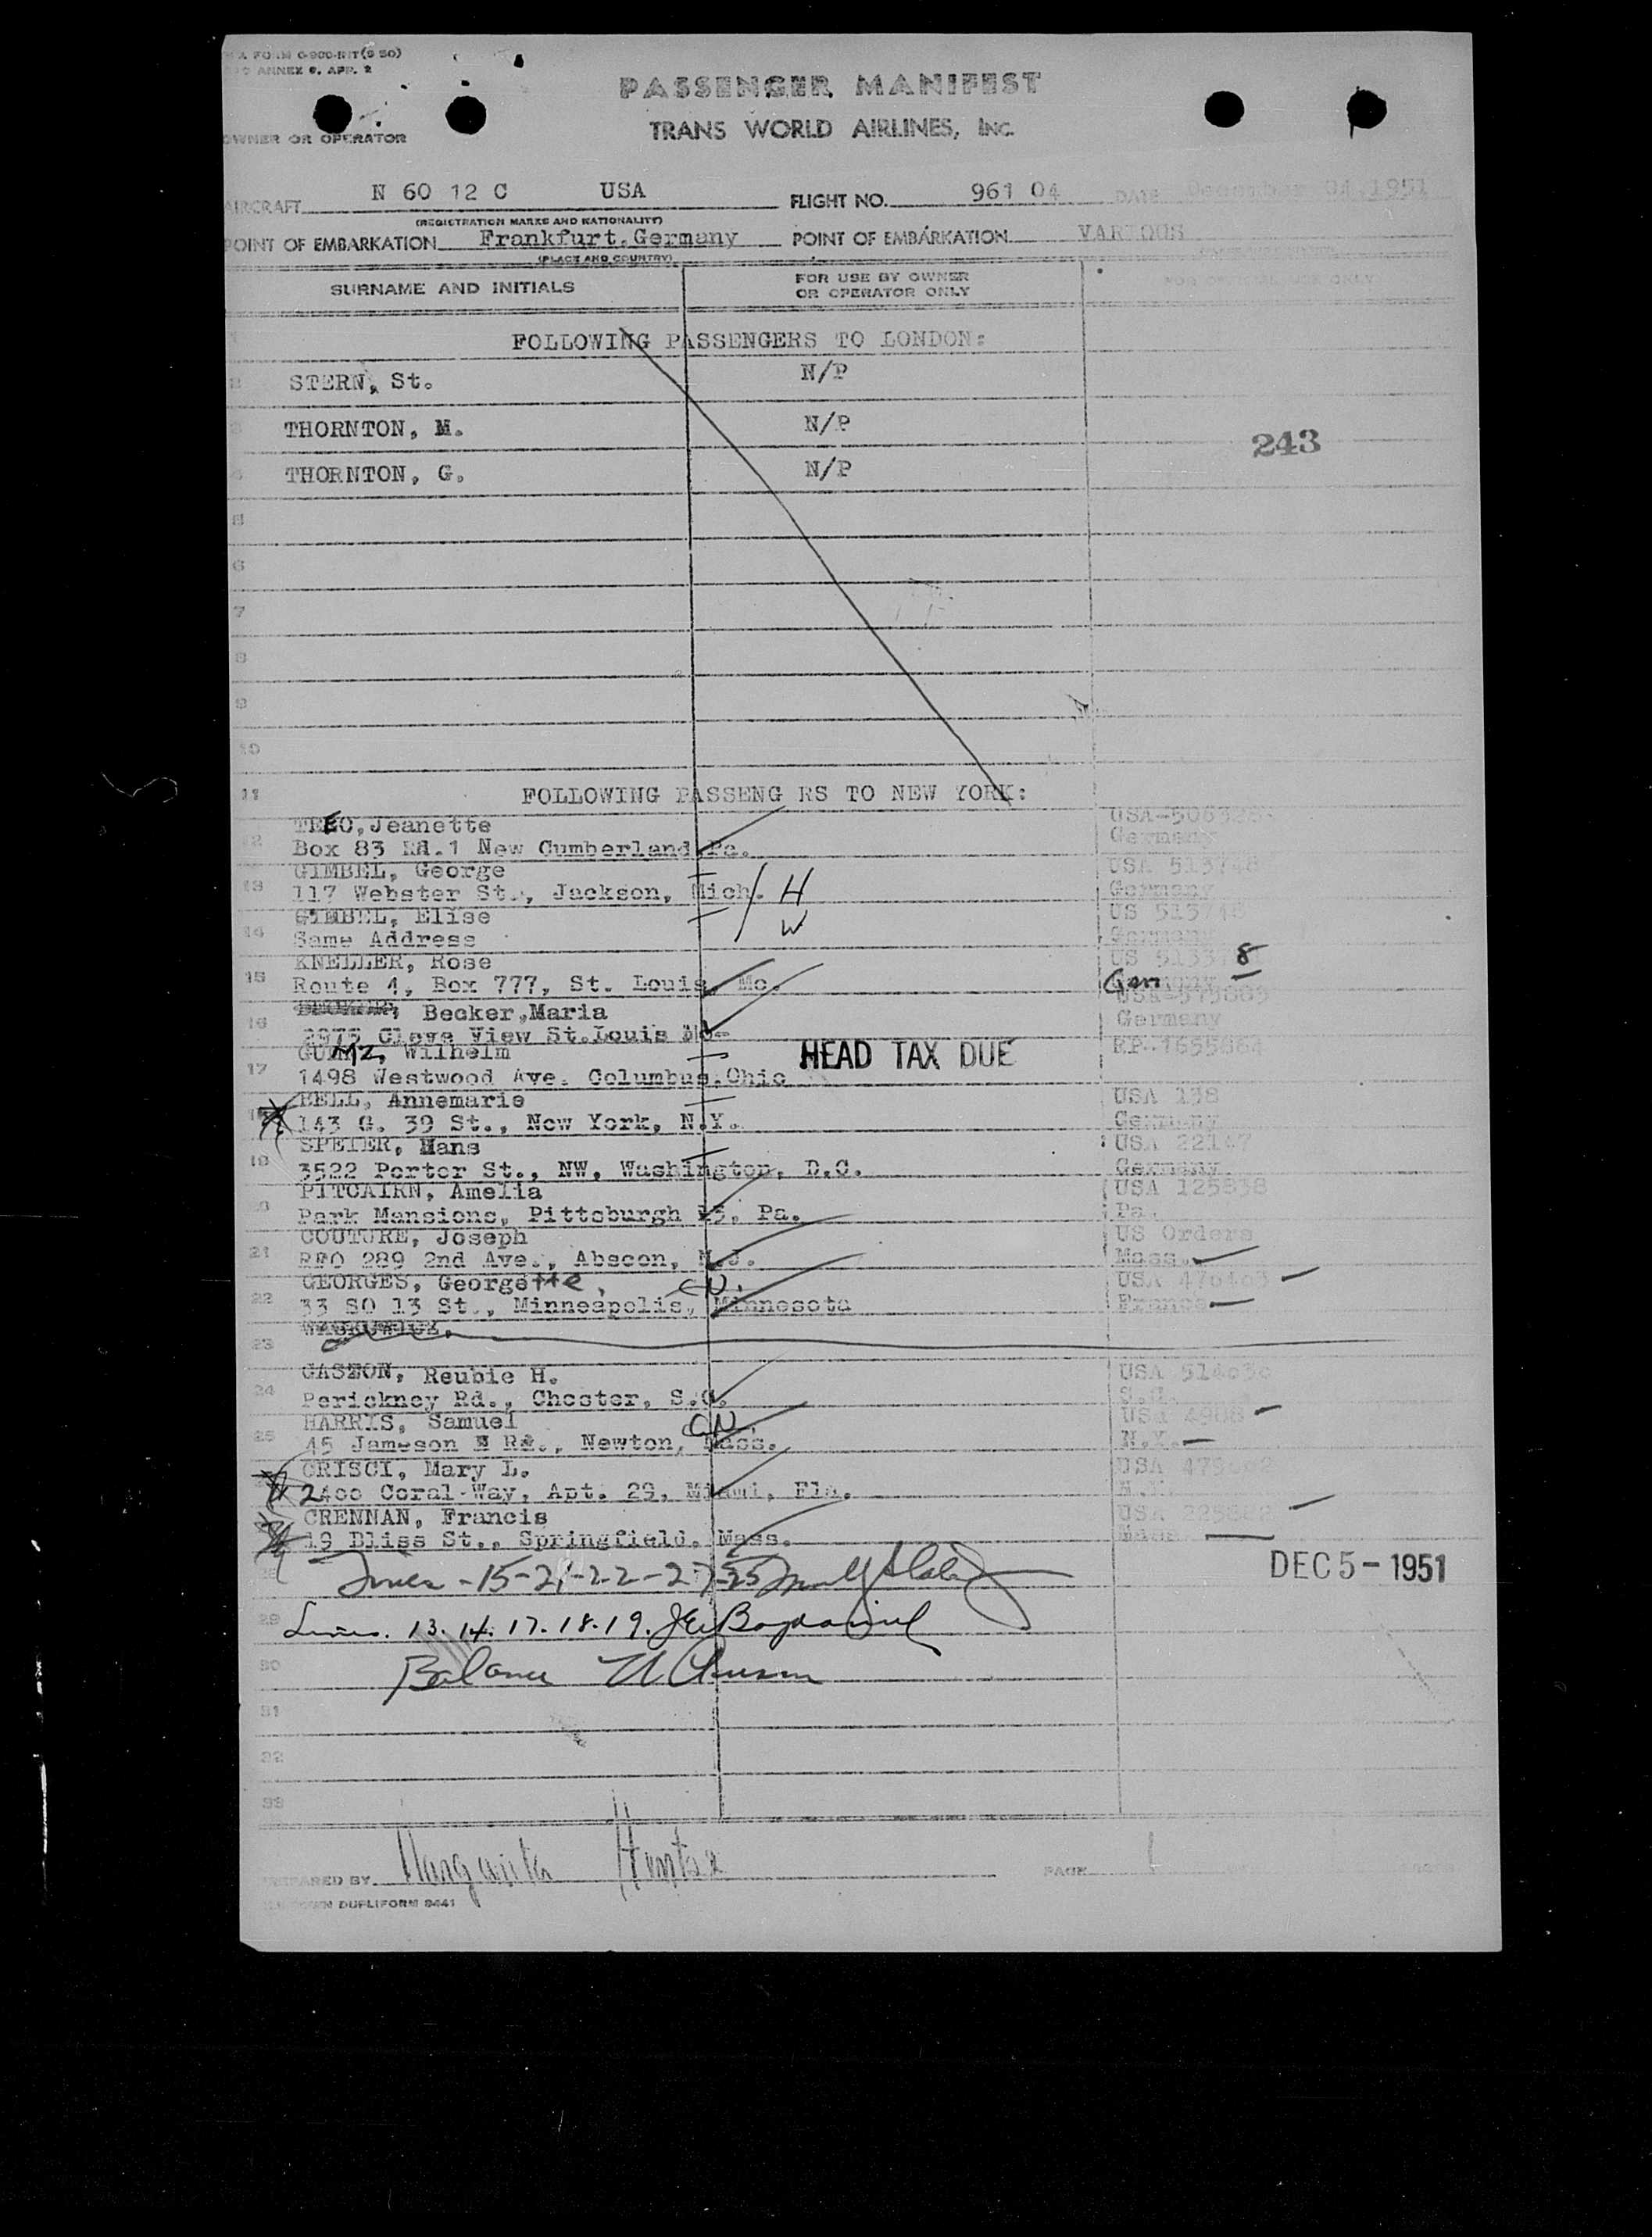 ANNEX 9, APP. 2
PASSENGER MANIFEST
TRANS WORLD AIRLINES, INC.
OWNER OR OPERATOR
AIRCRAFT N 60 12 C USA FLIGHT NO. 961 04 DATE December 04,1951
(REGISTRATION MARKS AND NATIONALITY)
POINT OF EMBARKATION Frankfurt.Germany POINT OF EMBARKATION VARIOUS
(PLACE AND COUNTRY)
SURNAME AND INITIALS FOR USE BY OWNER OR OPERATOR ONLY FOR OFFICIAL USE ONLY
FOLLOWING PASSENGERS TO LONDON:
2 STERN, St. N/P
3 THORNTON, M. N/P
243
4 THORNTON, G. N/P
5
6
7
8
9
10
11 FOLLOWING PASSENG RS TO NEW YORK:
TEEO, Jeanette
12 Box 83 Rd.1 New Cumberland Pa. Germany
GIMBEL, George USA 513748
13 117 Webster St., Jackson, Mich. H Germany
GIMBEL, Elise US 513748
14 Same Address W Germany
KNELLER, Rose 8
15 Route 4, Box 777, St. Louis, Mo. Ger
Becker,Maria
16 View St.Louis Mo Germany
GUMMZ, Wilhelm HEAD TAX DUE
17 1498 Westwood Ave. Columbus.Ohio
BELL, Annemarie USA 138
143 G. 39 St., New York, N.Y. Germany
SPETER, Hans USA 22147
19 3522 Porter St., NW, Washington, D.C. Germany
PITCAIRN, Amelia USA 125838
20 Park Mansions, Pittsburgh 13, Pa. Pa.
COUTURE, Joseph US Orders
21 RFO 289 2nd Ave., Abscon, N.J. Mass.
GEORGES, Georgette, CN.
22 33 SO 13 St., Minneapolis, Minnesota France
23
GASTON, Reubie H.
24 Perickney Rd., Chester, S.C. S.C.
HARRIS, Samuel CN. USA 4988
25 45 Jameson Rd., Newton, Mass. N.Y.
CRISCI, Mary L.
2400 Coral Way, Apt. 29, Miami, Fla. N.Y.
CRENNAN, Francis
19 Bliss St., Springfield, Mass. Mass
DEC 5 - 1951
29 Lines. 13. 14. 17. 18. 19.
30 Balance
31
32
33
PREPARED BY Margarita PAGE 1
DUPLIFORM